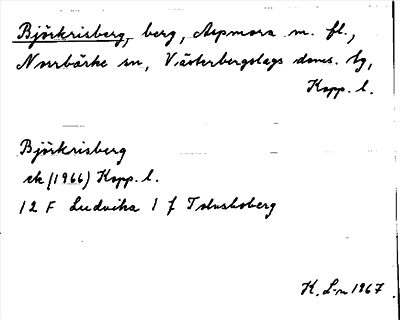 Björkrisberg, berg, Aspmora m. fl.,
Norrbärke sn, Västerbergslags doms. tg,
Kopp. l.
Björkrisberg
ek (1966) Kopp. l.
12 F Ludvika 1 f
K. L-n 1967.